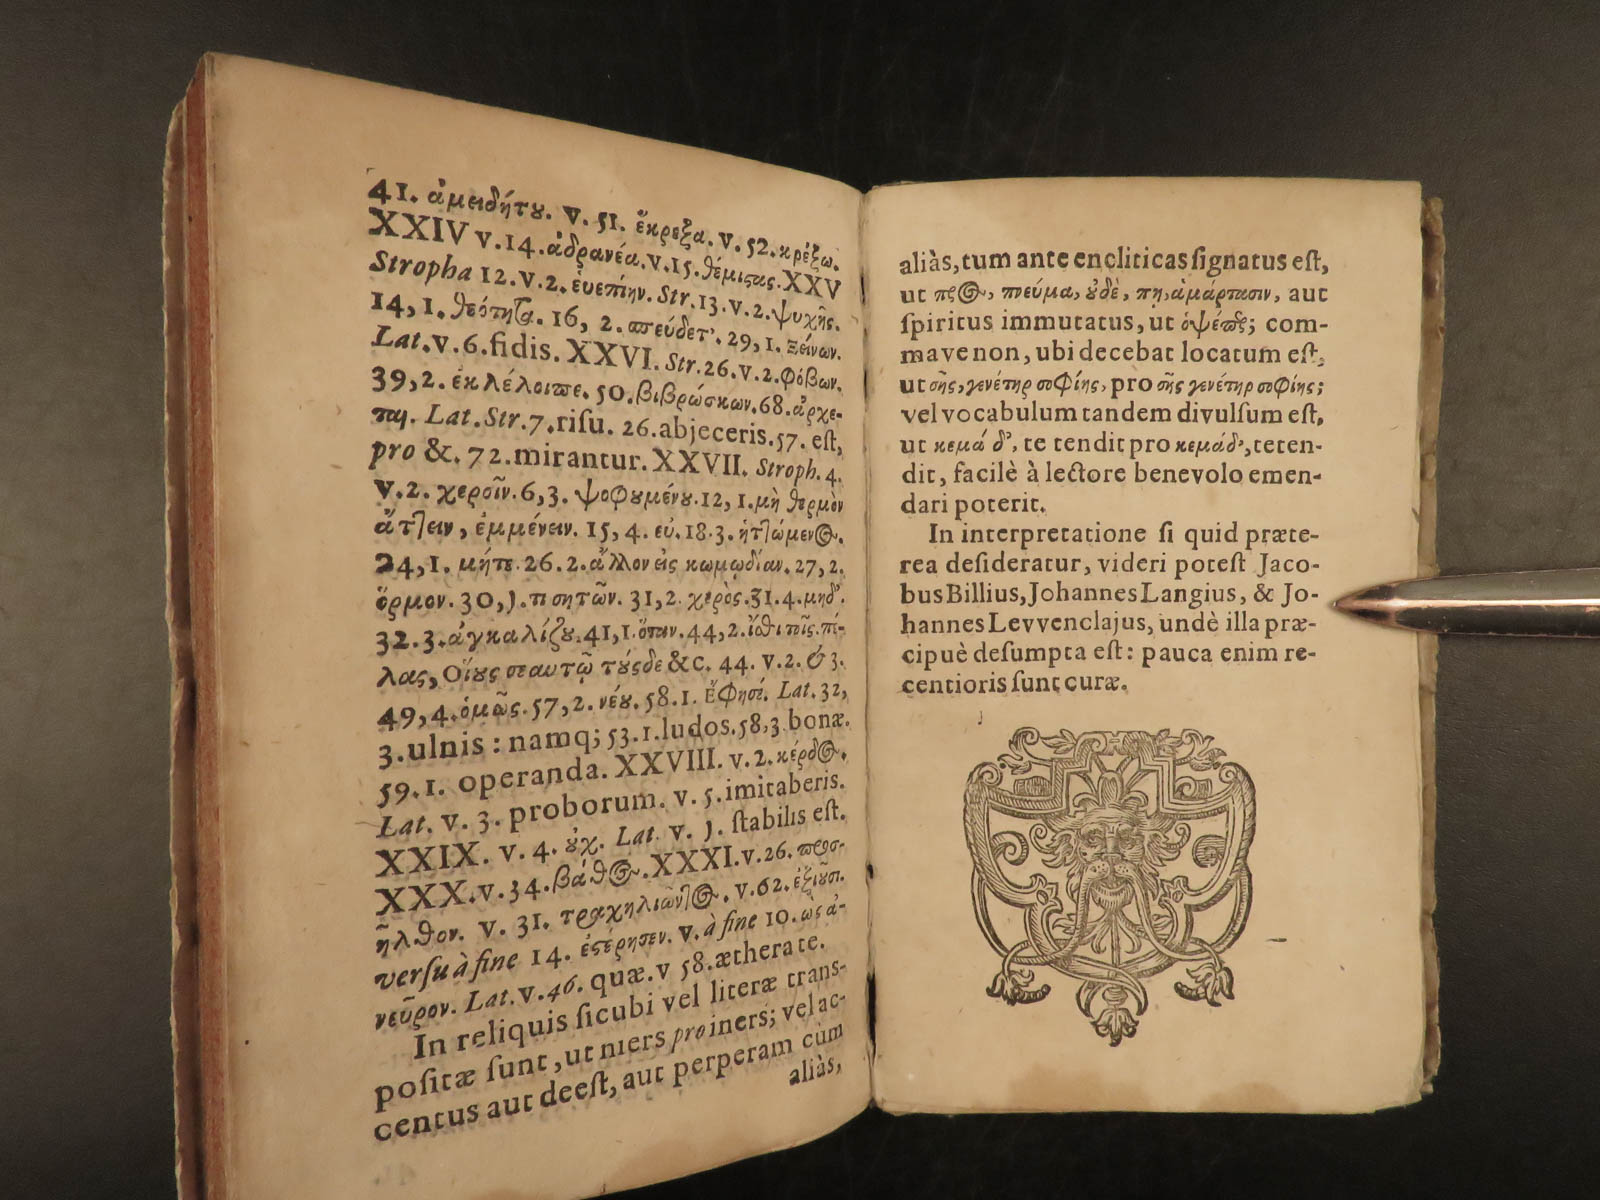 41. ἀμειδήτȣ. v. 51. ἔκρεξα. v. 52. κρέξω.
XXIV v. 14. ἀδρανέα. v. 15. θέμιϛας. XXV
Stropha 12. v. 2. ἐυεπίην. Str. 13. v. 2. ψυχῆς.
14, 1. θεότητα. 16, 2. απεύδετ'. 29, 1. Ξείνων.
Lat. v. 6. fidis. XXVI. Str. 26. v. 2. φόβων.
39, 2. ἐκλέλοιπε. 50. βιβρώσκων. 68. ἀρχε-
ται. Lat. Str. 7. risu. 26. abjeceris. 57. est,
pro &. 72. mirantur. XXVII. Stroph. 4.
v. 2. χερσῖν. 6, 3. ψοφȣμένȣ. 12, 1. μὴ θερμὸν
ἄτ]ειν, ἐμμένειν. 15, 4. ευ. 18. 3. ἡτ]ώμενος.
24, 1. μήτε. 26. 2. ἄλλον εἰς κωμῳδίαν. 27, 2.
ὅρμον. 30, J. π σητῶν. 31, 2. χερὸς. 31. 4. μηδ'.
32. 3. ἀγκαλίζȣ. 41, 1. ὅταν. 44, 2. ἴθι τοῖς πί-
λας, Οἵȣς σεαυτῷ τȣ́σδε &c. 44. v. 2. & 3.
49, 4. ὁμῶς. 57, 2. νέȣ. 58. 1. ἔφησέ. Lat. 32,
3. ulnis: namq; 53. 1. ludos. 58, 3. bonæ.
59. 1. operanda. XXVIII. v. 2. κέρδος.
Lat. v. 3. proborum. v. 5. imitaberis.
XXIX. v. 4. ȣ̓χ. Lat. v. J. stabilis est.
XXX. v. 34. βάθος. XXXI. v. 26. περισ-
ῆλθον. v. 31. τραχηλιῶντος. v. 62. ἐξιȣ͂σι.
versu à fine 14. ἐϛέρησεν. v. à fine 10. ὡς ἀ-
νεῦρον. Lat. v. 46. quæ. v 58. ætherate.
In reliquis sicubi vel literæ trans-
positæ sunt, ut niers pro iners; vel ac-
centus aut deest, aut perperam cùm
aliàs,
aliàs, tum ante encliticas signatus est,
ut πνεύμα, ȣ̓δὲ, πη, ἁμάρτασιν, aut
spiritus immutatus, ut; com-
mave non, ubi decebat locatum est,
ut σῆς, γενέτηρ σοφίης, pro σῆς γενέτηρ σοφίης;
vel vocabulum tandem divulsum est,
ut κεμά δ', te tendit pro κεμάδ', teten-
dit, facilè à lectore benevolo emen-
dari poterit.
In interpretatione si quid præte-
rea desideratur, videri potest Jaco-
bus Billius, Johannes Langius, & Jo-
hannes Levvenclajus, undè illa præ-
cipuè desumpta est: pauca enim re-
centioris sunt curæ.